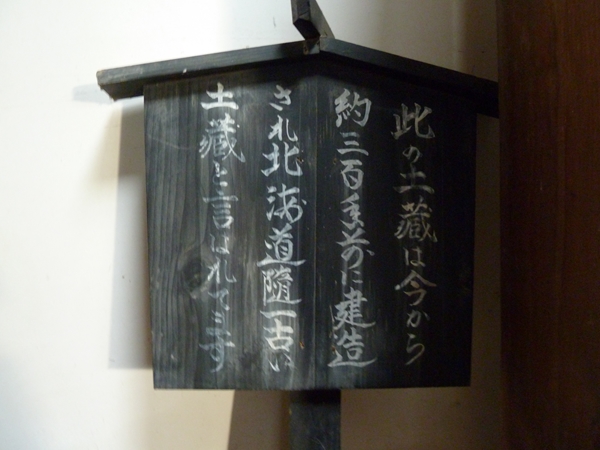 此の土蔵は今から
約三百年前に建造
され北海道随一古い
土蔵と言はれてゐます